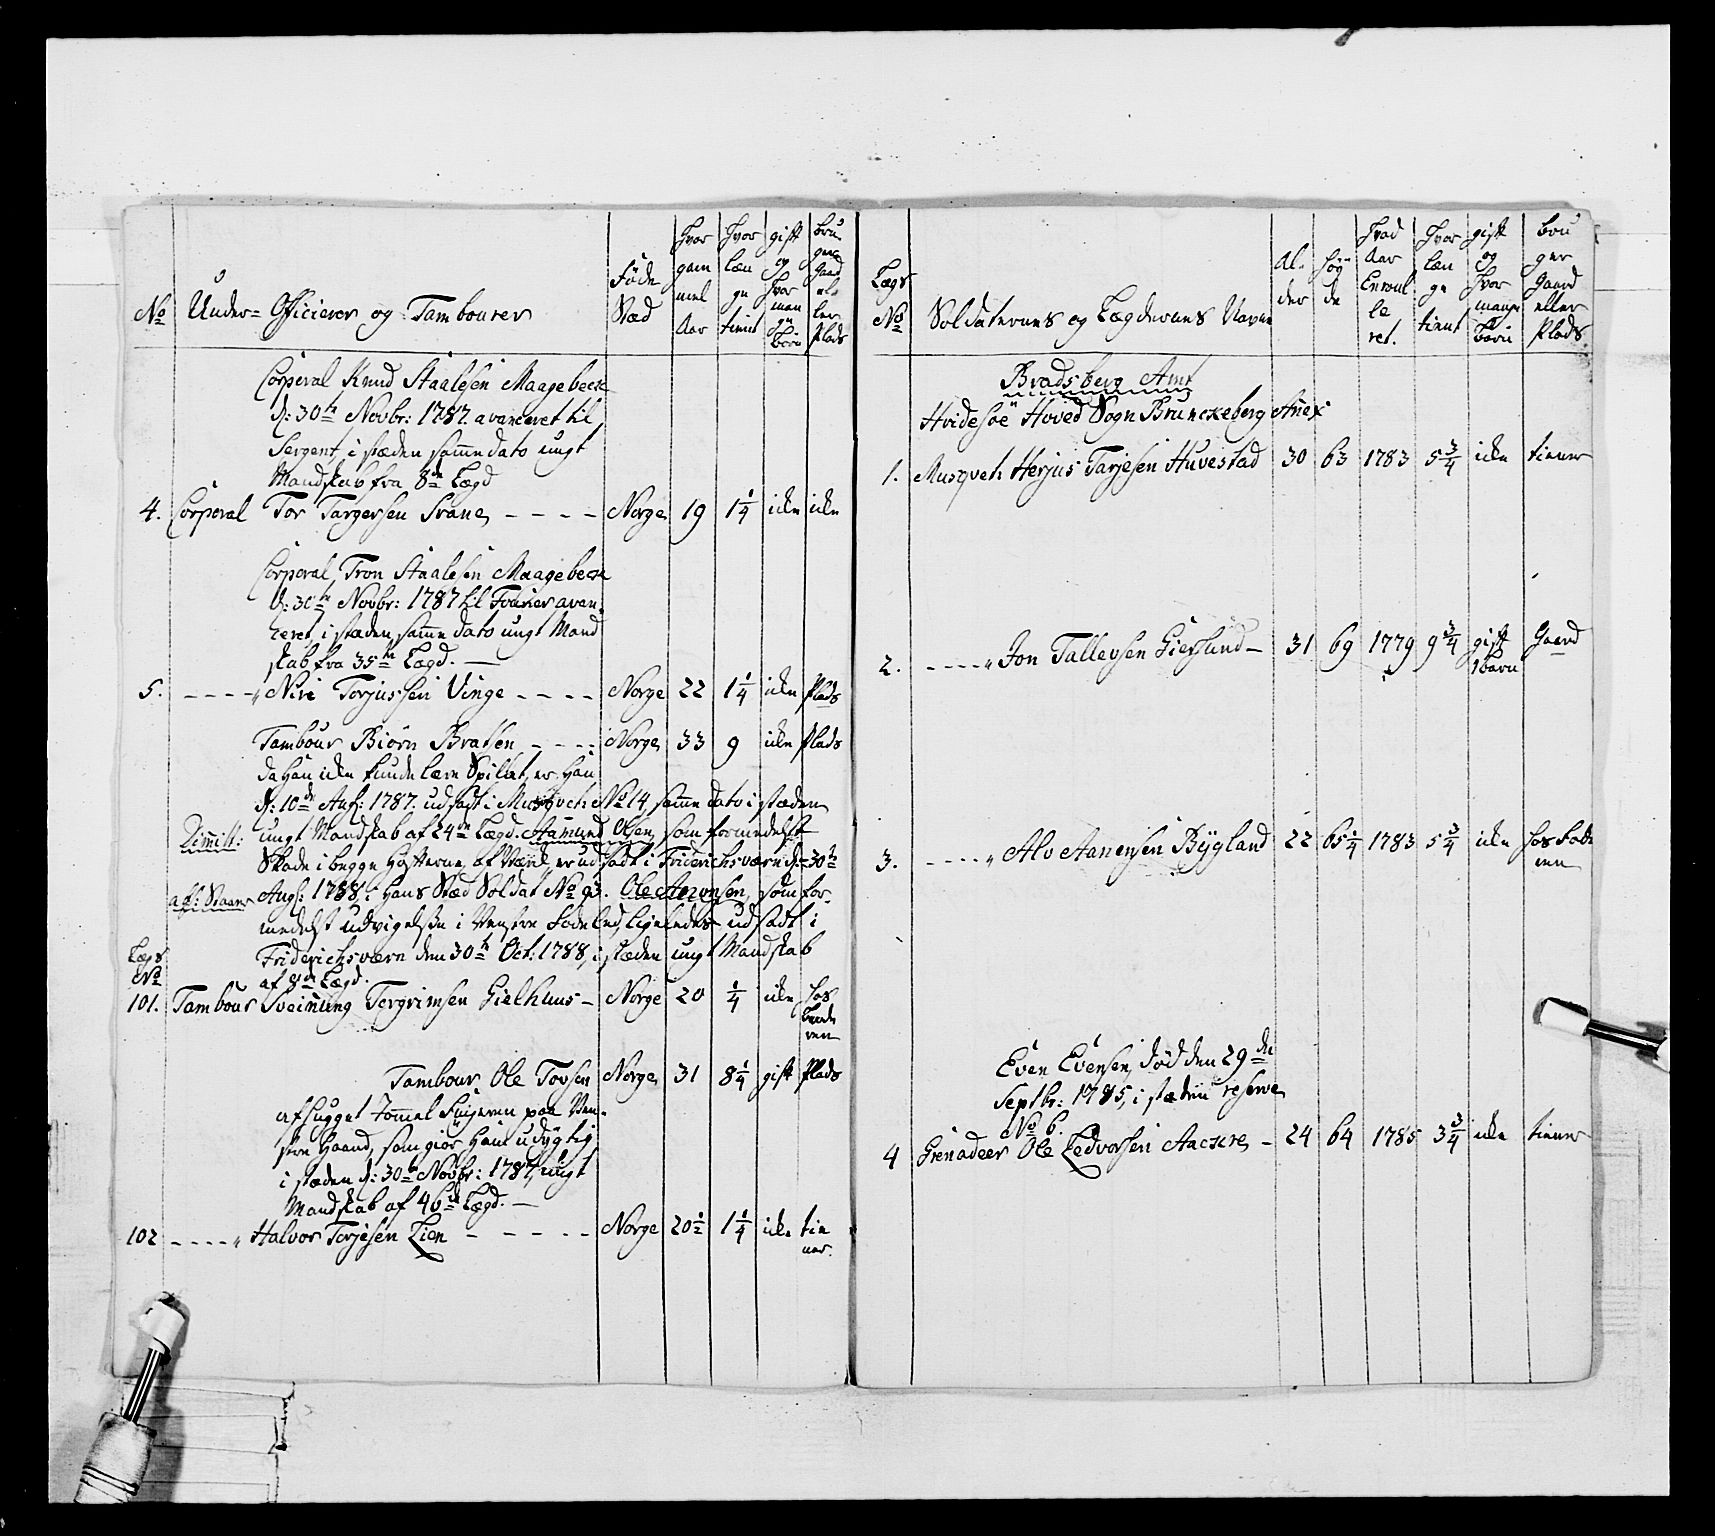 No Under= Officierer og Tambourer Føde Stæd Hvor gam mel Aar Hvor læn ge tient gift og Hvor man ge Børn bru ger Gaard el ler Plads
Corporal Knud Staalesen Maagebeck
d: 30te Novbr: 1787. avanceret til
Sergent i stæden samme dato ungt
Mandskab fra 8de Lægd
4. Corporal Tor Targersen Svane - - - - Norge 19 1 1/4 icke icke
Corporal Tron Staalesen Maagebeck
d: 30te Novbr: 1787 til Fourier avan-
ceret, i stæden samme dato ungt Mand
skab fra 35te Lægd. —
5. - - - - " Niri Torjussen Vinge - - - - Norge 22 1 1/4 icke Plads
Tambour Biørn Bratsen - - - - Norge 33 9 icke Plads
da Han icke kunde lære Spillet, er Han
d: 10de Aug: 1787. udsadt i Musqvet: No 14, samme dato i stæden
Dimitt: ungt Mandskab af 24de Lægd. Aamund Olsen, som formedelst
Skade i begge Hofterne af Værk, er udsadt i Friderichsværn d: 30te
Aug: 1788, i Hans Stæd Soldat No 93. Ole Aanonsen, som for-
medelst udvigelse i Venstre Fodeled, ligeledes udsadt i
Friderichsværn den 30te Oct: 1788, i stæden ungt Mandskab
af 8de Lægd.
Lægs No
101. Tambour Sveinung Tergrimsen Gielhuus - Norge 20 1/4 icke hos
Tambour Ole Tovsen Norge 31 8 1/4 gift Plads
afhugget Tommel Fingeren paa Ven-
stre Haand, som giør Ham udygtig
i stæden d: 30te Novbr: 1787, ungt
Mandskab af 46de Lægd. —
102 - - - - " Halvor Torjesen Lien - - - - - Norge 20 1/2 1 1/4 icke tie
ner.
Lægs No Soldaternes og Lægdernes Navne Al- der Høy de Hvad Aar Enroul le ret. Hvor læn ge tient gift og Hvor mange Børn bru ger Gaard eller Plads.
Bradsberg Amt
Hvidesøe Hoved Sogn Brunckeberg Anex
1. Musqvet: Herjus Tarjesen Huvestad 30 63 1783 5 3/4 icke tiener
2. - - - - " Jon Tallevsen Gierslund - 31 69 1779 9 3/4 gift Gaard
1 barn
3. - - - - " Alv Aanensen Bygland 22 65 1/4 1783 5 3/4 icke
Even Evensen, død den 29de
Septbr: 1785, i stæden reserve
No 6.
4 Grenadeer Ole Ledvorsen Aackre - 24 64 1785 3 3/4 icke tiener